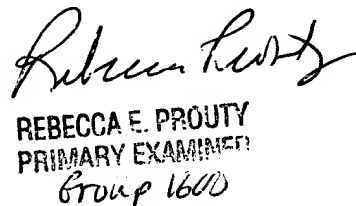 Rebecca Prouty
REBECCA E. PROUTY
PRIMARY EXAMINER
Group 1600